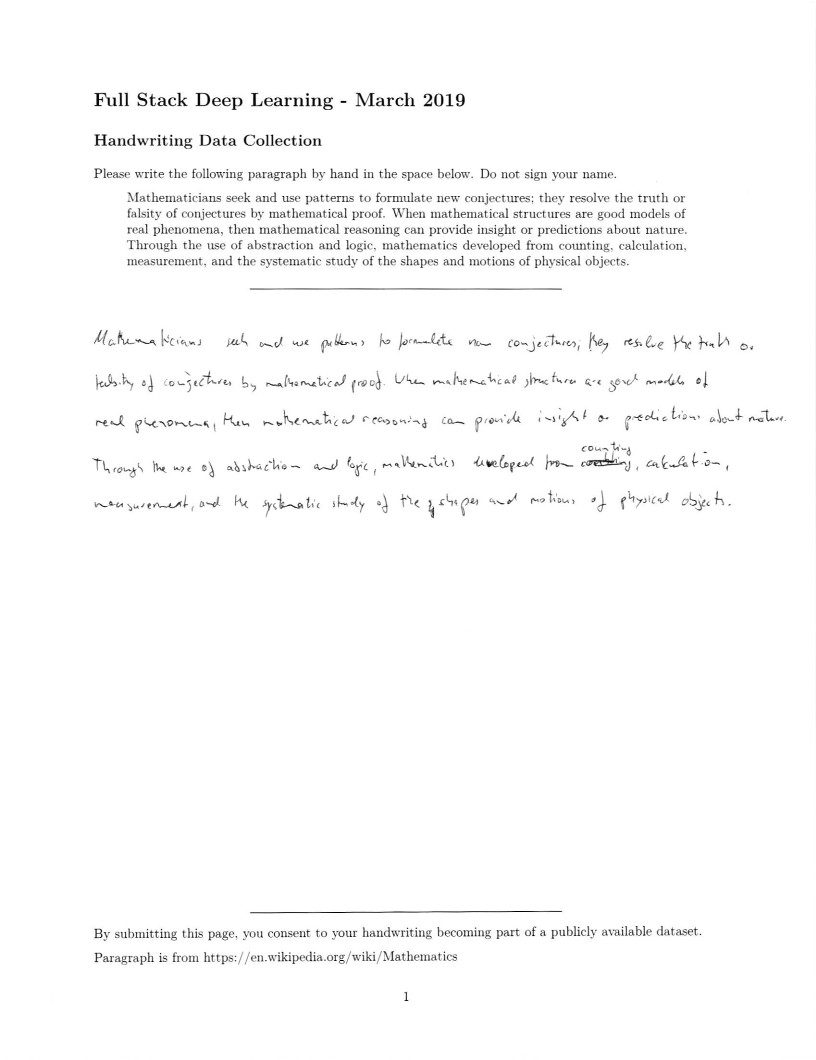 Full Stack Deep Learning - March 2019
Handwriting Data Collection
Please write the following paragraph by hand in the space below. Do not sign your name.
Mathematicians seek and use patterns to formulate new conjectures; they resolve the truth or
falsity of conjectures by mathematical proof. When mathematical structures are good models of
real phenomena, then mathematical reasoning can provide insight or predictions about nature.
Through the use of abstraction and logic, mathematics developed from counting, calculation,
measurement, and the systematic study of the shapes and motions of physical objects.
Mathematicians seek and use patterns to formulate new conjectures; they resolve the truth or
falsity of conjectures by mathematical proof. When mathematical structures are good models of
real phenomena, then mathematical reasoning can provide insight or predictions about nature.
counting
Through the use of abstraction and logic, mathematics developed from , calculation,
measurement, and the systematic study of the shapes and motions of physical objects.
By submitting this page, you consent to your handwriting becoming part of a publicly available dataset.
Paragraph is from https://en.wikipedia.org/wiki/Mathematics
1